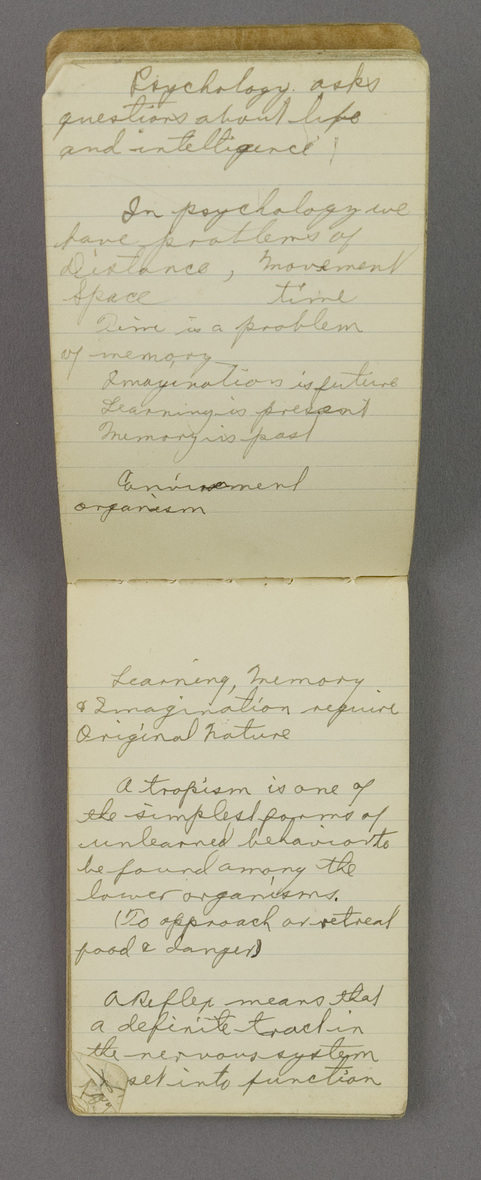 Psychology asks
questions about life
and intelligence!
In psychology we
have problems of
distance, movement
Space time
Time is a problem
of memory
Imagination is future
Learning is present
Memory is past
Enviroment
organism
Learning, Memory
& Imagination require
Original Nature
A tropism is one of
the simplest forms of
unlearned behavior to
be found among the
lower organisms.
(To approach or retreat
food & danger)
A Reflex means that
a definite tract in
the nervous system
set into function